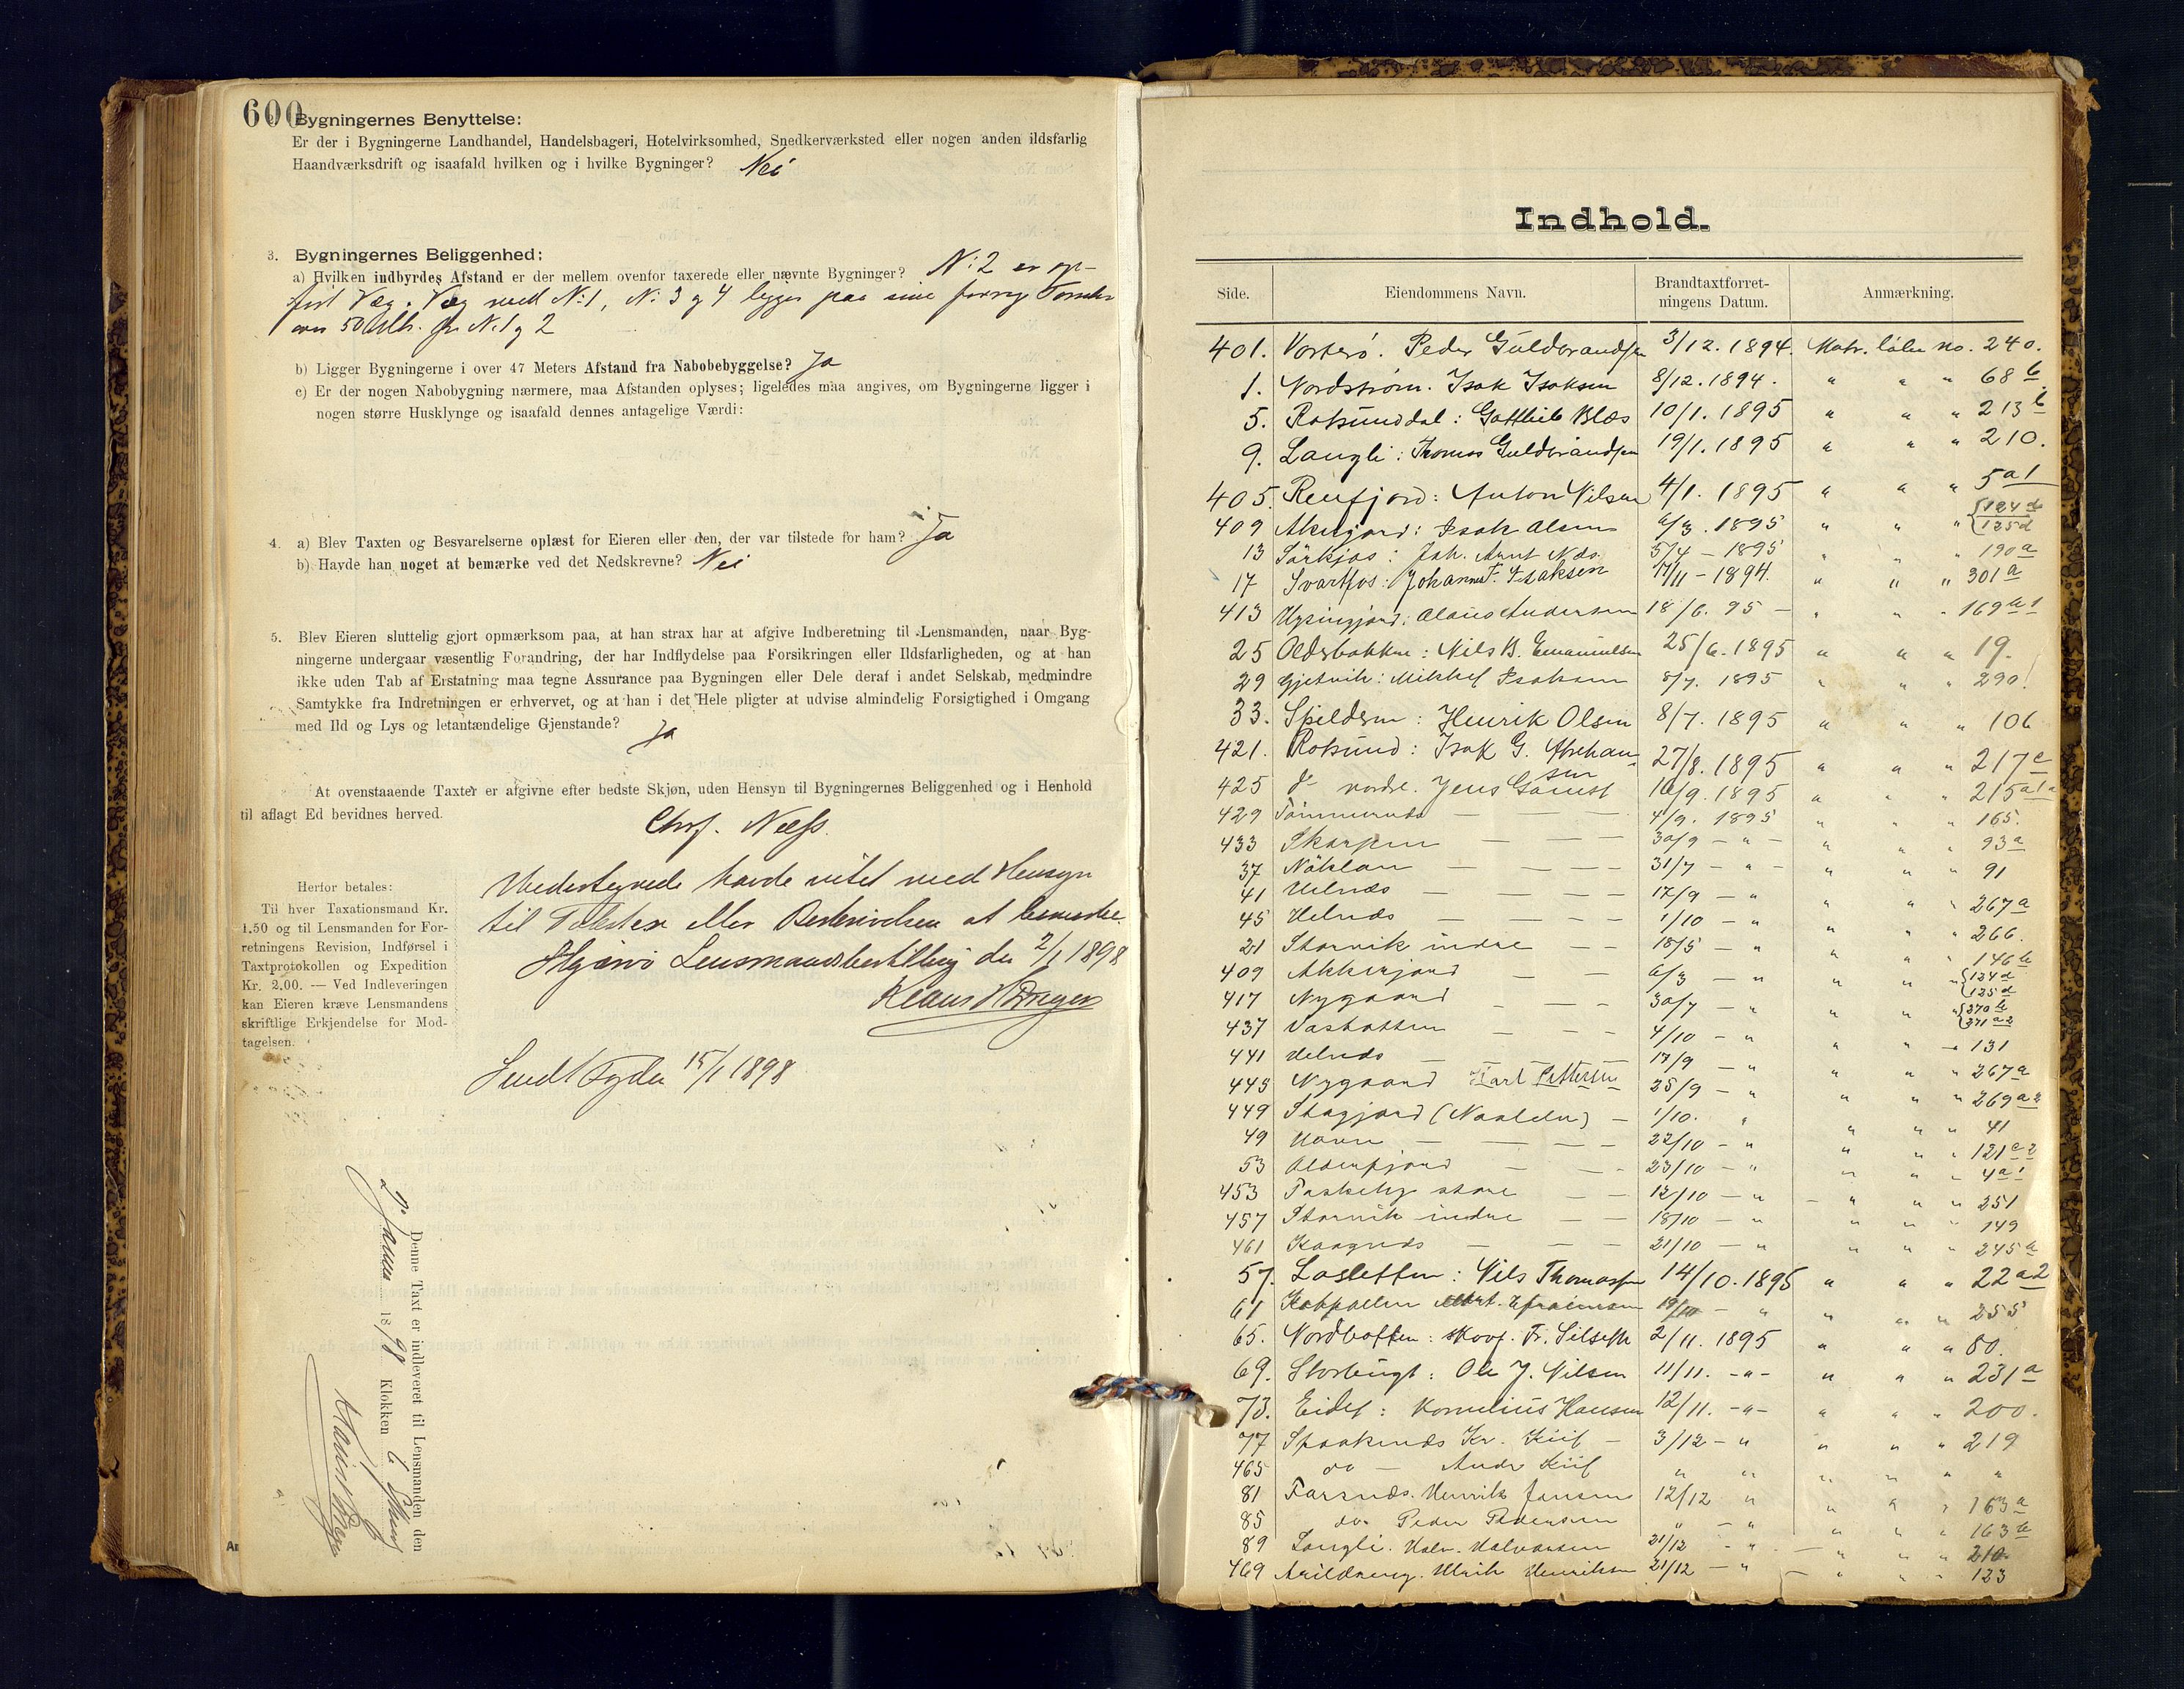 600
Bygningernes Benyttelse:
Er der i Bygningerne Landhandel, Handelsbageri, Hotelvirksomhed, Snedkerværksted eller nogen anden ildsfarlig
Haandværksdrift og isaafald hvilken og i hvilke Bygninger? Nei
3. Bygningernes Beliggenhed:
a) Hvilken indbyrdes Afstand er der mellem ovenfor taxerede eller nævnte Bygninger? N: 2 er op-
ført Væg i Væg med N: 1, N: 3 og 4 ligger paa sine
over 50 N. 1 og 2
b) Ligger Bygningerne i over 47 Meters Afstand fra Nabobebyggelse? Ja
c) Er der nogen Nabobygning nærmere, maa Afstanden oplyses; ligeledes maa angives, om Bygningerne ligger i
nogen større Husklynge og isaafald dennes antagelige Værdi:
4. a) Blev Taxten og Besvarelserne oplæst for Eieren eller den, der var tilstede for ham? Ja
b) Havde han noget at bemærke ved det Nedskrevne? Nei
5. Blev Eieren sluttelig gjort opmærksom paa, at han strax har at afgive Indberetning til Lensmanden, naar Byg-
ningerne undergaar væsentlig Forandring, der har Indflydelse paa Forsikringen eller Ildsfarligheden, og at han
ikke uden Tab af Erstatning maa tegne Assurance paa Bygningen eller Dele deraf i andet Selskab, medmindre
Samtykke fra Indretningen er erhvervet, og at han i det Hele pligter at udvise almindelig Forsigtighed i Omgang
med Ild og Lys og letantændelige Gjenstande? Ja
At ovenstaaende Taxter er afgivne efter bedste Skjøn, uden Hensyn til Bygningernes Beliggenhed og i Henhold
til aflagt Ed bevidnes herved.
Chrf. Næss.
Undertegnede havde intet med Hensyn
til Taksten eller Beskrivelsen at bemærke
Skjervø Lensmandsbestilling den 2/1 1898
Klaus Dreyer
Herfor betales:
Til hver Taxationsmand Kr.
1.50 og til Lensmanden for For-
retningens Revision, Indførsel i
Taxtprotokollen og Expedition
Kr. 2.00. — Ved Indleveringen
kan Eieren kræve Lensmandens
skriftlige Erkjendelse for Mod-
tagelsen.
Sendt 15/1 1898
Denne Taxt er indleveret til Lensmanden den
2. Januar 1898 Klokken 6
Indhold.
Side. Eiendommens Navn. Brandtaxtforret-
ningens Datum. Anmærkning.
401. Vorterø. Peder Guldbrandsen 3/12. 1894. Matr. løbe no. 240.
1. Nordstrøm. Isak Isaksen 8/12. 1894. " " " 68 b.
5. Rotsunddal: Gottlieb Blæs 10/1. 1895 " " " 213 b
9. Langli: Thomas Guldbrandsen 19/1. 1895 " " " 210.
405. Reinfjord: Anton Nilsen 4/1. 1895 " " " 5 a 1
409 Akkerfjord: Isak Olsen 6/3. 1895 " " " 124 d
125 d
13 Sørkjos: Joh. Arnt Næs. 5/4 - 1895 " " " 190 a
17 Svartfos: Johannes F. Isaksen 17/11 - 1894. " " " 301 a
413 Olaus Andersen 18/6. 95 - " " " 169 a 1
25 Olderbakken: Nils B. Emanuelsen 25/6. 1895 " " " 19.
29 Gjetvik: Mikkel Isaksen 8/7. 1895 " " " 290.
33. Spilderen: Henrik Olsen 8/7. 1895 " " " 106
421. Rotsund: Isak G. Abraham-
sen 27/8. 1895 " " " 217 c
425 do nordre. Jens Gamst 16/9. 1895 " " " 215 a 1
429 4/9. 1895 " " " 165.
433 Skarpen — — — 30/9 - " - " " " 93 a
37 Nøklan — — — 31/7 - " - " " " 91
41 Uelnæs — — — 17/9 - " " " " 267 a
45 Helnæs — — — 1/10 - " " " " 266.
21 Storvik indre — — 18/5 - " " " " 146 b
409 Akkerfjord — — 6/3 - " " " " 124 d
125 d
417 Nygaard — — — 30/7 - " " " " 270 b
271 a 2
437 Vasbotten — — — 4/10 - " " " 131
441 Uelnæs — 17/9 - " " " " 267 a
445 Nygaard Karl Pettersen 25/9 - " " " " 269 a 2
449 Skagfjord (Naalelv) — 1/10. " " " " 41
49 Havn — — — 22/10 - " " " " 121 a 2
53 Olderfjord — — 23/10 - " " " " 4 a 1
453 Taskeby store — — 12/10 - " - " " " 251
457 Storvik indre — — 18/10 - " " " " 149
461 Kaagnæs — — — 21/10 - " " " " 245 a
57. Lasletten: Nils Thomassen 14/10. 1895 " " " 22 a 2
61 19/10 - " " " " 255
65. Nordbotten: Skovf. Fr. Silseth 2/11. 1895 " " " 80.
69. Storbugt: Ole J. Nilsen 11/11. -"- " " " 231 a
73. Eidet: Kornelius Hansen 12/11. -"- " " " 200.
77 Spaaknæs Kr. Kiil — 3/12 - " " " " 219
465 do — Andr. Kiil " " " " " "
81 Taxnæs. Henrik Jensen 12/12 " " " " 163 a
85 do. Peder Pedersen " - " " " " 163 b
89 Langli. Halv. Halvorsen 21/12 - " - " " " 210
469 Ulrik Henriksen 21/12 - " - " " " 123